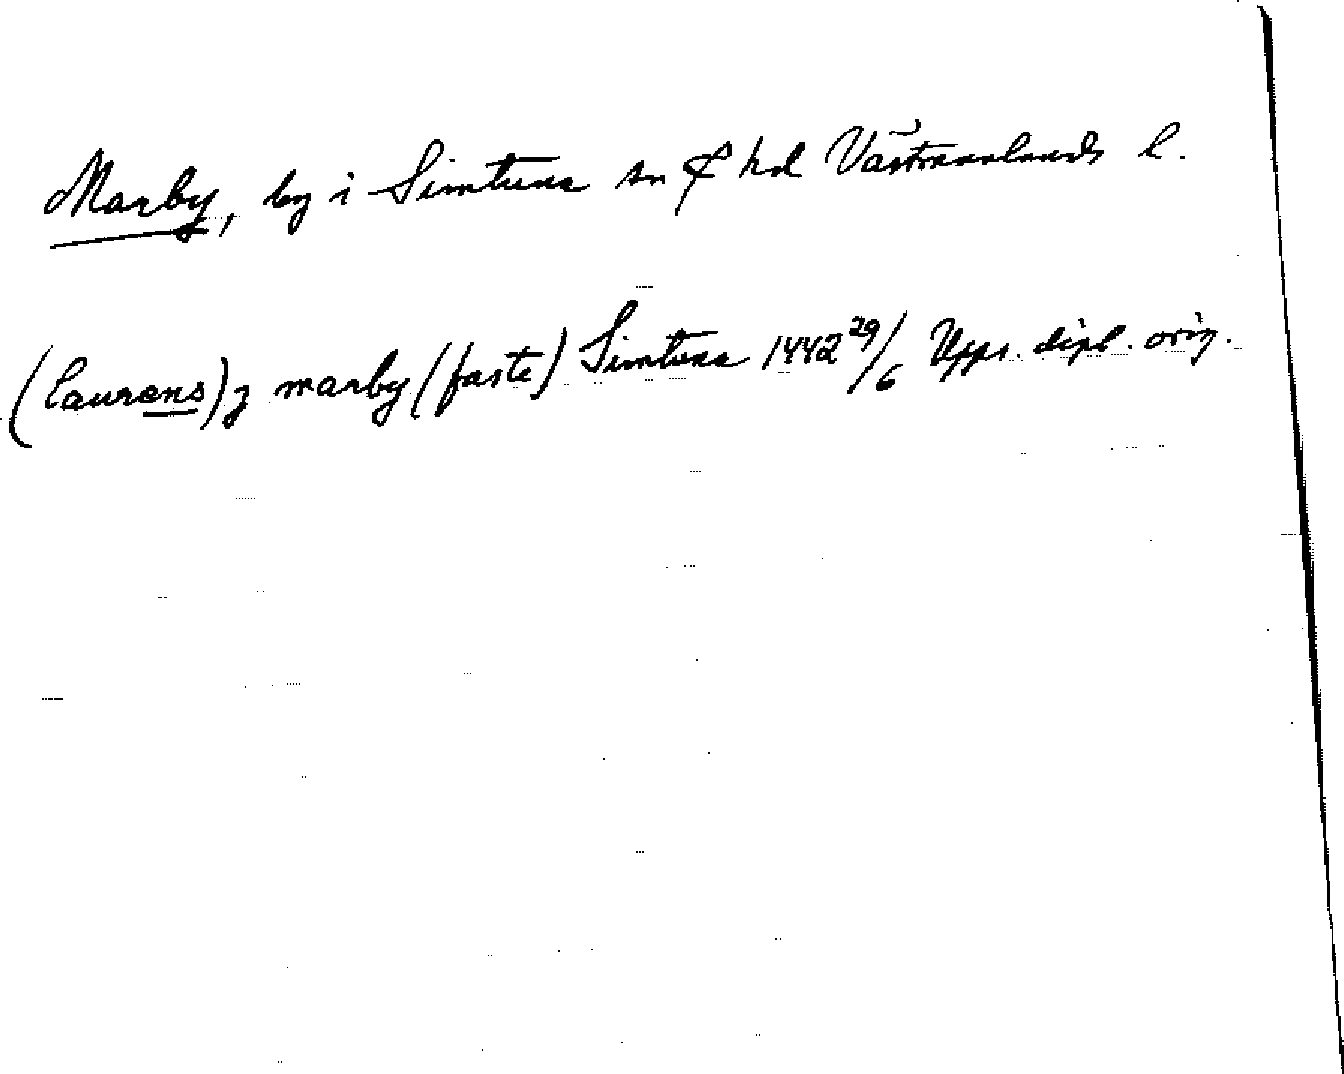 Marby, by i Simtuna sn & hd Västmanlands l.
(laurens) ȝ marby (faste) Simtuna 1442 29/6 Upps. dipl. orig.